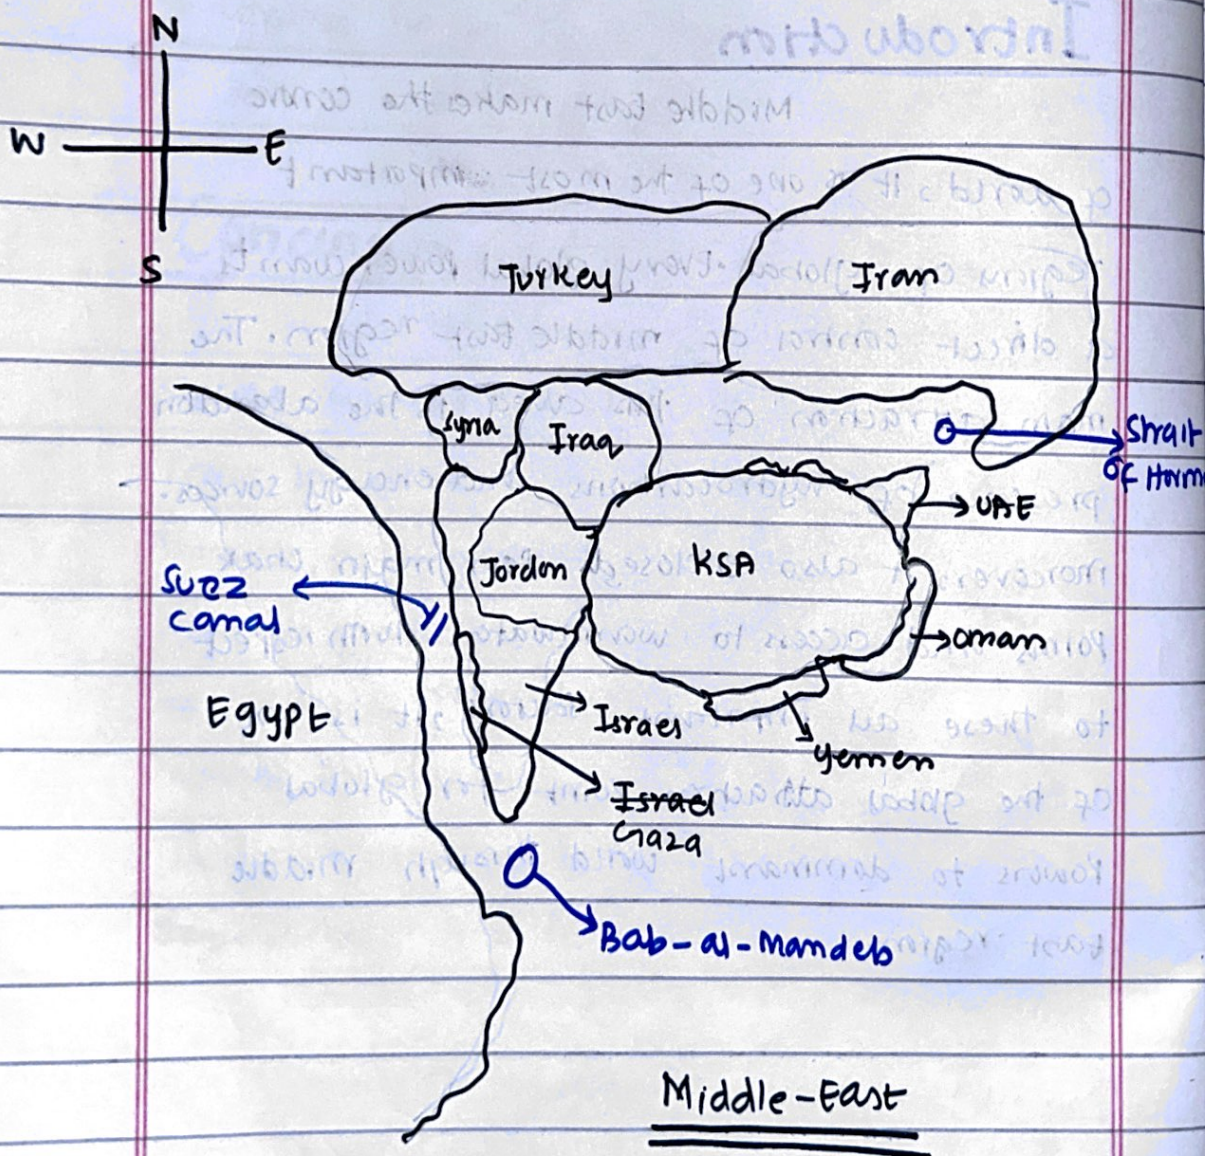 N
W E
S
Turkey
Iran
Syria
Iraq
Strait
of Horm
UAE
Jordon
KSA
Suez
Canal
Oman
Egypt
Israel
Yemen
Israel
Gaza
Bab-al-Mandeb
Middle-East